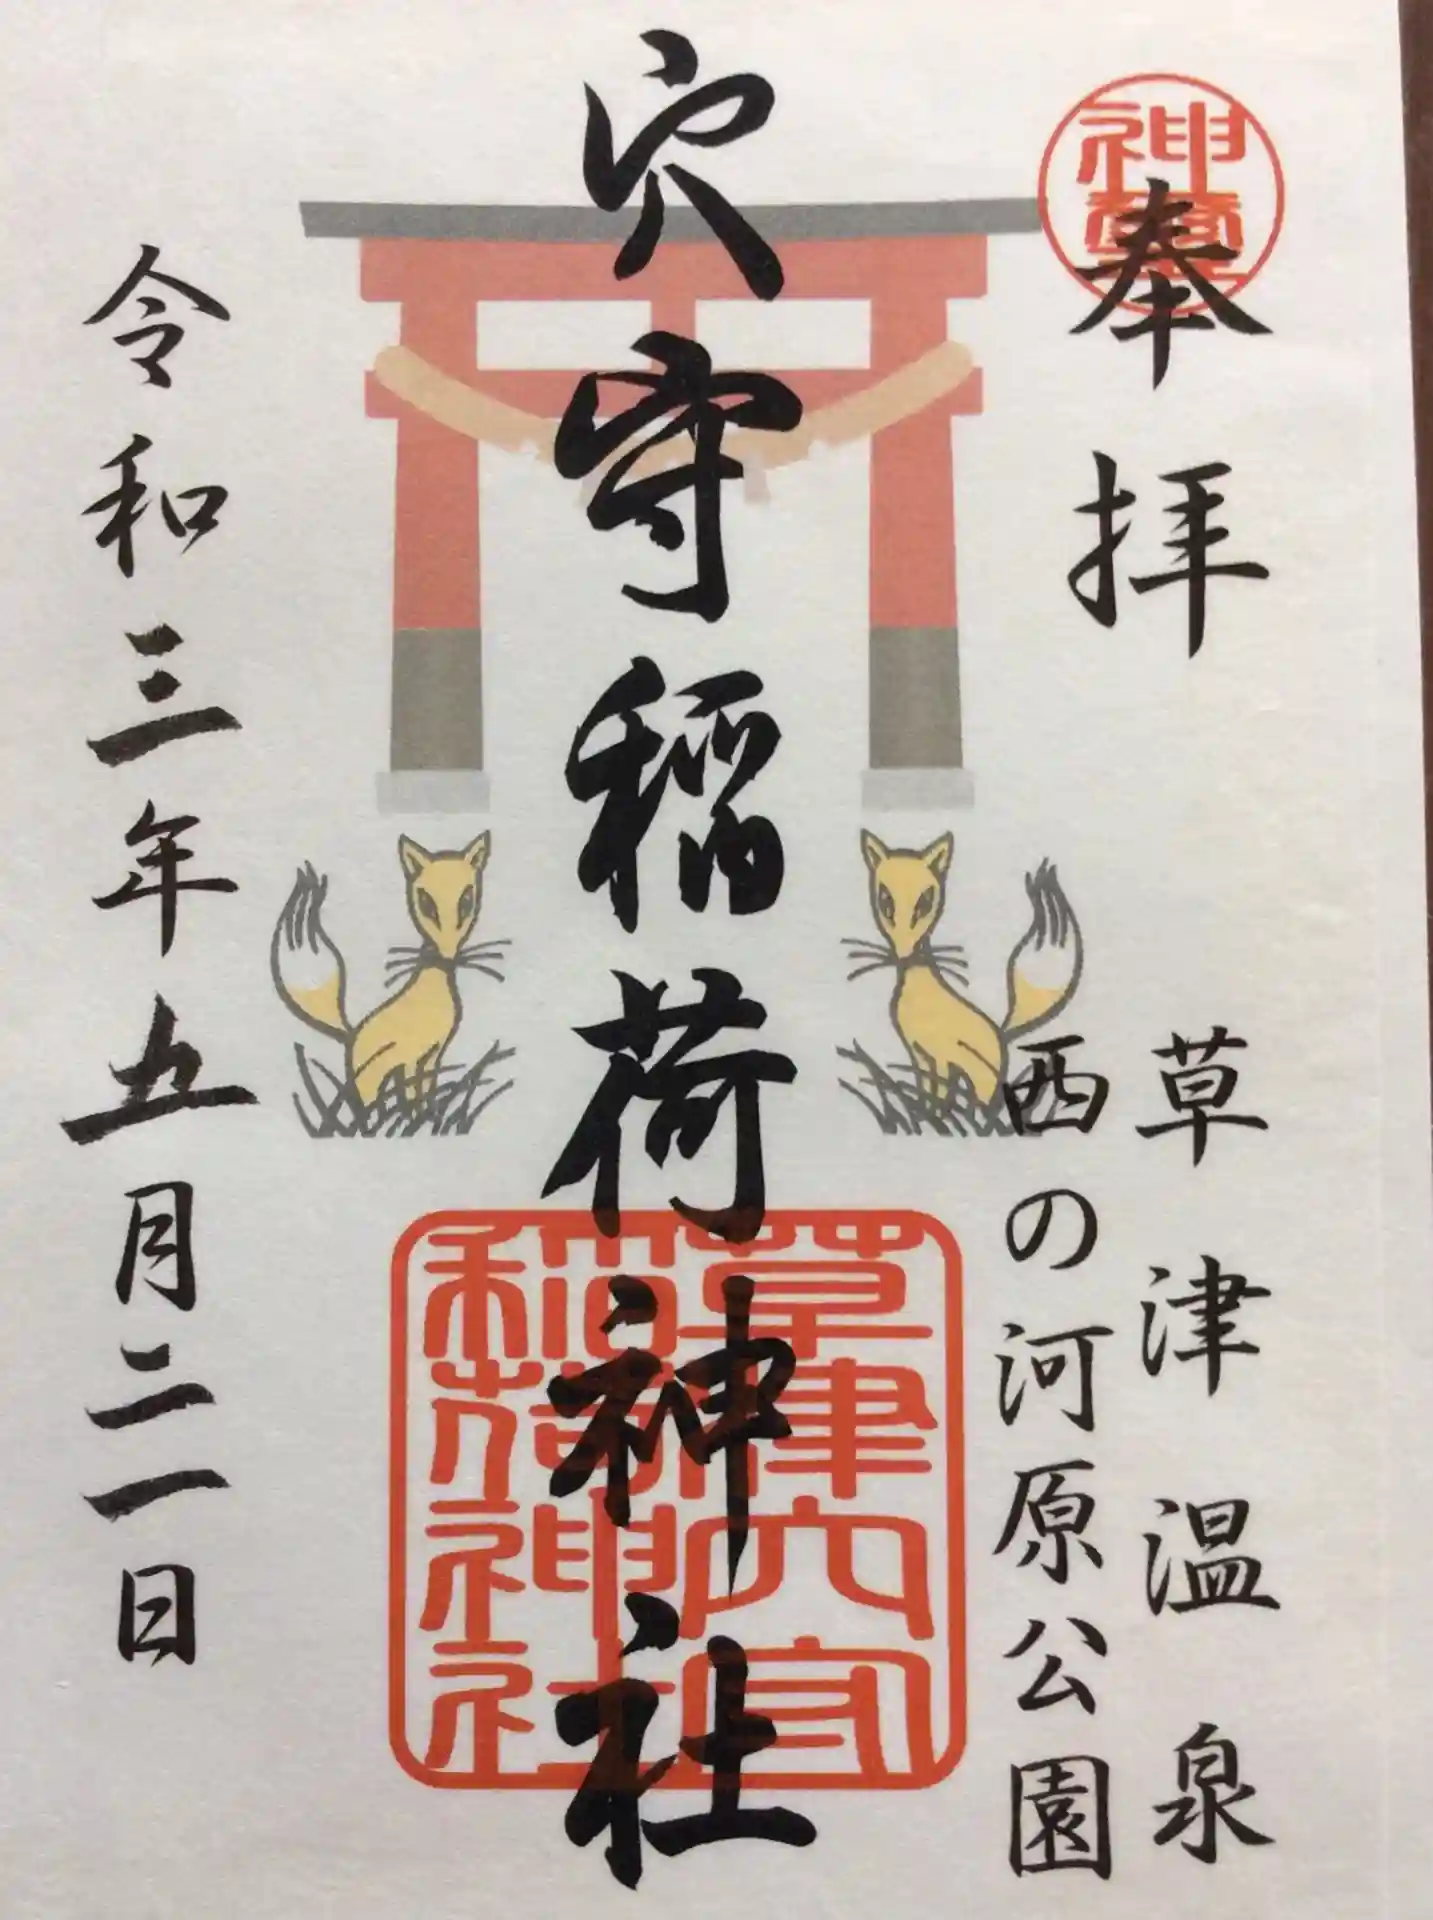 奉拝
草津温泉
西の河原公園
穴守稲荷神社
草津穴守
稲荷神社
令和三年五月二一日